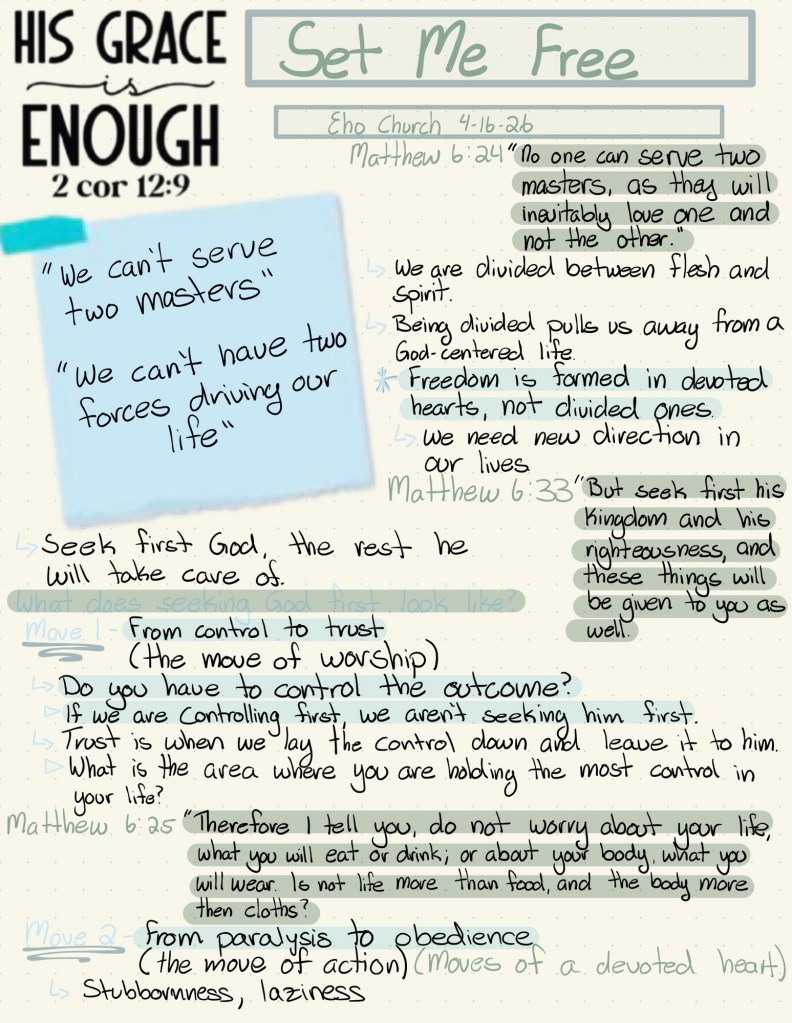 HIS GRACE
is
ENOUGH
2 cor 12:9
Set Me Free
Eho Church 4-16-26
Matthew 6:24 "No one can serve two
masters, as they will
inevitably love one and
not the other."
"We can't serve
two masters"
"We can't have two
forces driving our
life"
We are divided between flesh and
spirit.
Being divided pulls us away from a
God-centered life.
* Freedom is formed in devoted
hearts, not divided ones.
We need new direction in
our lives
Matthew 6:33 "But seek first his
Kingdom and his
righteousness, and
these things will
be given to you as
well."
Seek first God, the rest he
will take care of.
What does seeking God first look like?
Move 1- From control to trust
(the move of worship)
Do you have to control the outcome?
If we are controlling first, we aren't seeking him first.
Trust is when we lay the control down and leave it to him.
What is the area where you are holding the most control in
your life?
Matthew 6:25 "Therefore I tell you, do not worry about your life,
what you will eat or drink; or about your body, what you
will wear. Is not life more than food, and the body more
then cloths?
Move 2- From paralysis to obedience
(the move of action) (Moves of a devoted heart)
Stubbornness, laziness